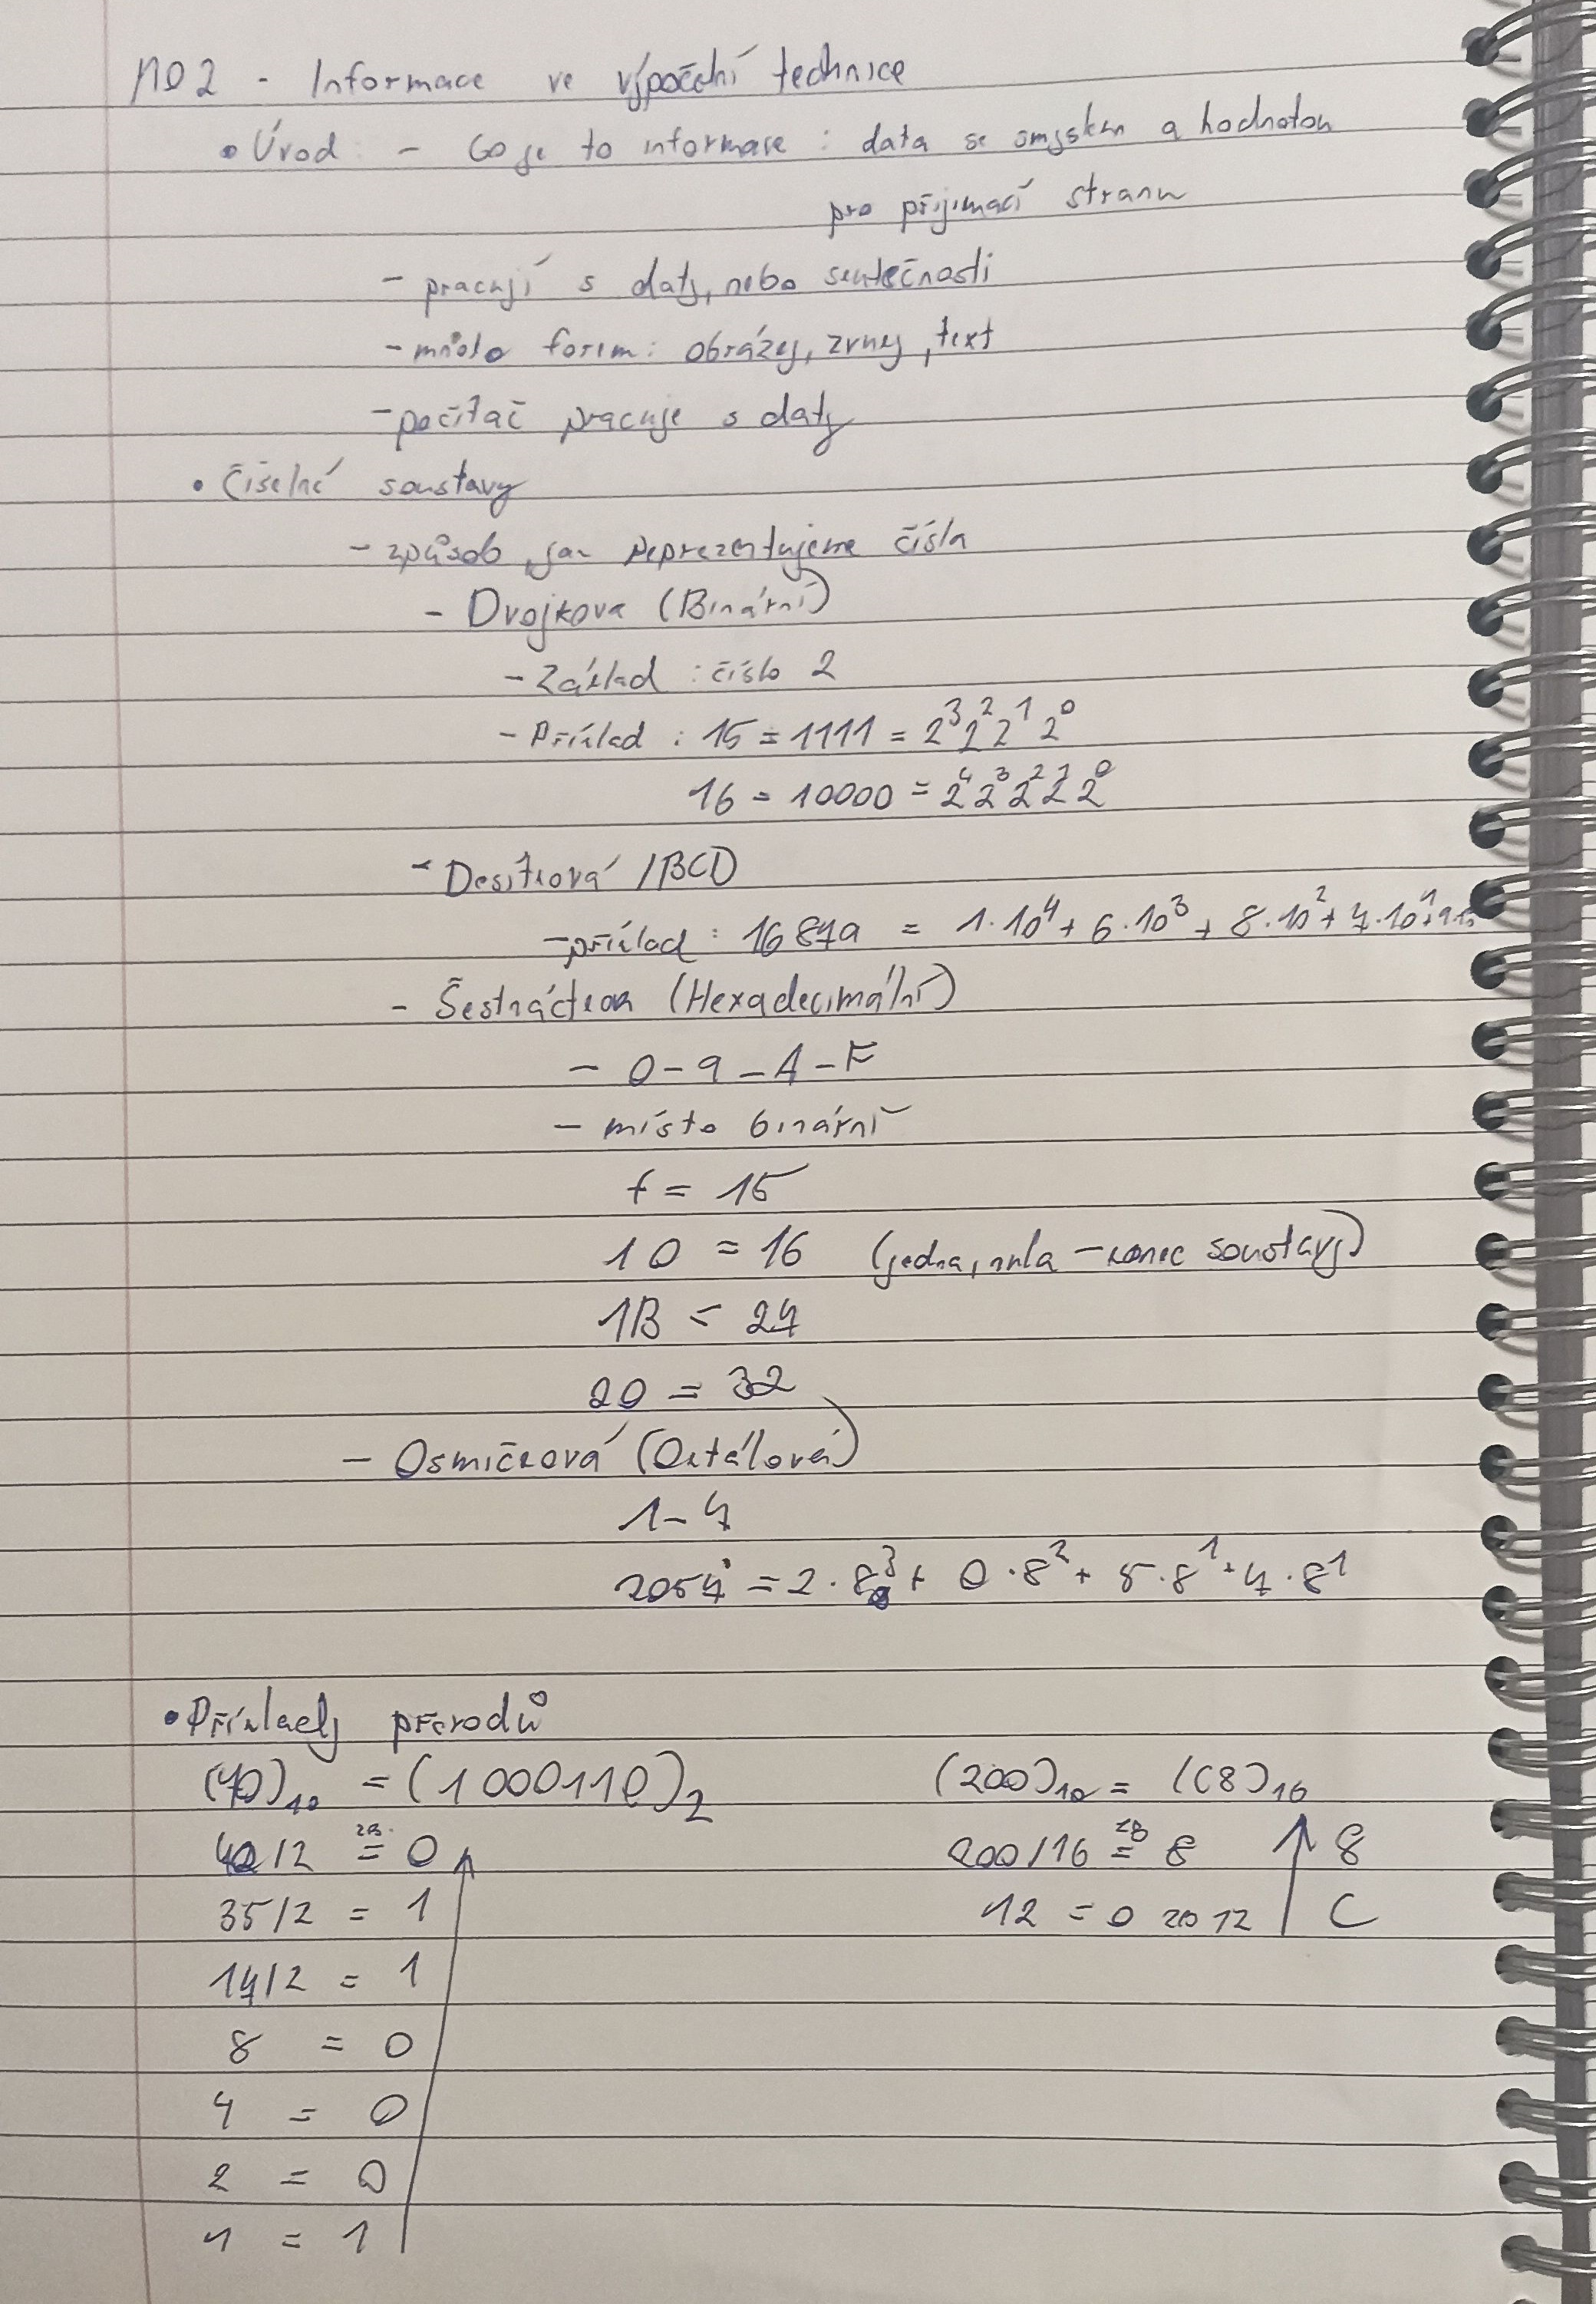 MO2 - Informace ve výpočetní technice
• Úvod: - Co je to informace : data se smyslem a hodnotou
pro přijimací stranu
- pracují s daty, nebo skutečnosti
- mnoho forem: obrázky, zvuky, text
- počítač pracuje s daty
• Číselné soustavy
- způsob, jak reprezentujeme čísla
- Dvojkova (Binární)
- Základ : číslo 2
- Příklad : 15 = 1111 = 2³ 2² 2¹ 2⁰
16 = 10000 = 2⁴ 2³ 2² 2¹ 2⁰
- Desítková /BCD
- příklad : 16879 = 1·10⁴ + 6·10³ + 8·10² + 7·10¹ +
- Šestnáctkova (Hexadecimální)
- 0-9-A-F
- místo binární
f = 15
10 = 16 (jedna, nula - konec soustavy)
1B = 27
20 = 32
- Osmičková (Oktálová)
1-7
2057 = 2·8³ + 0·8² + 5·8¹ + 7·8¹
• Příklady převodů
(70)₁₀ = (1000110)₂ (200)₁₀ = (C8)₁₆
70/2 zb. = 0 200/16 zb = 8 8
35/2 = 1 12 = 0 zb 12 C
17/2 = 1
8 = 0
4 = 0
2 = 0
1 = 1